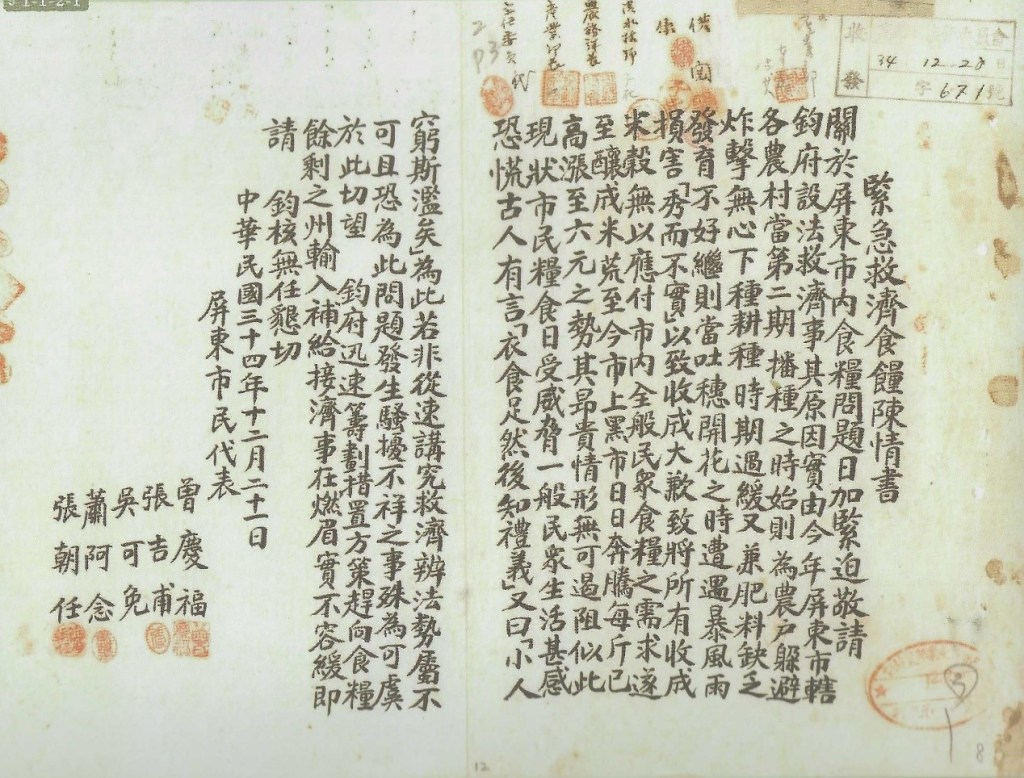 緊急救濟食饉陳情書
關於屏東市內食糧問題日加緊迫敬請
鈞府設法救濟事其原因實由今年屏東市轄
各農村當第二期播種之時始則為農戶躲避
炸擊無心下種耕種時期過緩又兼肥料缺乏
發育不好繼則當吐穗開花之時遭遇暴風雨
損害「秀而不實」以致收成大歉致將所有收成
米穀無以應付市內全般民衆食糧之需求遂
至釀成米荒至今市上黑市日日奔騰每斤已
高漲至六元之勢其昂貴情形無可遏阻似此
現狀市民糧食日受威脅一般民衆生活甚感
恐慌古人有言「衣食足然後知禮義」又曰「小人
窮斯濫矣」為此若非從速講究救濟辨法勢屬不
可且恐為此問題發生騷擾不祥之事殊為可虞
於此切望 鈞府迅速籌劃措置方策趕向食糧
餘剩之州輸入補給接濟事在燃眉實不容緩即
請 鈞核無任懇切
中華民國三十四年十二月二十一日
屏東市民代表
曾慶福
張吉甫
吳可免
蕭阿念
張朝任
收 發
34 12 28 日
字 671 號
2
P3
代
5
8
12
5-1-1-2-1